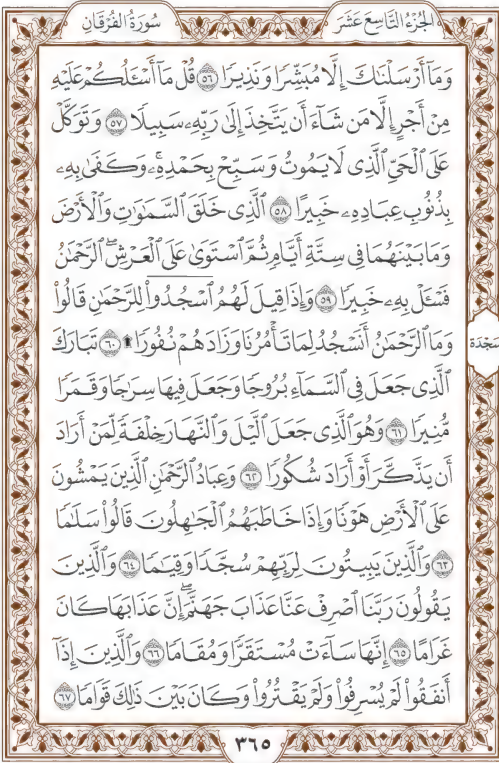 الجزء التاسع عشر
سورة الفرقان
وَمَآ أَرْسَلْنَٰكَ إِلَّا مُبَشِّرًا وَنَذِيرًا ٥٦ قُلْ مَآ أَسْـَٔلُكُمْ عَلَيْهِ
مِنْ أَجْرٍ إِلَّا مَن شَآءَ أَن يَتَّخِذَ إِلَىٰ رَبِّهِۦ سَبِيلًا ٥٧ وَتَوَكَّلْ
عَلَى ٱلْحَىِّ ٱلَّذِى لَا يَمُوتُ وَسَبِّحْ بِحَمْدِهِۦۚ وَكَفَىٰ بِهِۦ
بِذُنُوبِ عِبَادِهِۦ خَبِيرًا ٥٨ ٱلَّذِى خَلَقَ ٱلسَّمَٰوَٰتِ وَٱلْأَرْضَ
وَمَا بَيْنَهُمَا فِى سِتَّةِ أَيَّامٍ ثُمَّ ٱسْتَوَىٰ عَلَى ٱلْعَرْشِۖ ٱلرَّحْمَٰنُ
فَسْـَٔلْ بِهِۦ خَبِيرًا ٥٩ وَإِذَا قِيلَ لَهُمُ ٱسْجُدُوا۟ لِلرَّحْمَٰنِ قَالُوا۟
وَمَا ٱلرَّحْمَٰنُ أَنَسْجُدُ لِمَا تَأْمُرُنَا وَزَادَهُمْ نُفُورًا ٦٠ تَبَارَكَ
سجدة
ٱلَّذِى جَعَلَ فِى ٱلسَّمَآءِ بُرُوجًا وَجَعَلَ فِيهَا سِرَٰجًا وَقَمَرًا
مُّنِيرًا ٦١ وَهُوَ ٱلَّذِى جَعَلَ ٱلَّيْلَ وَٱلنَّهَارَ خِلْفَةً لِّمَنْ أَرَادَ
أَن يَذَّكَّرَ أَوْ أَرَادَ شُكُورًا ٦٢ وَعِبَادُ ٱلرَّحْمَٰنِ ٱلَّذِينَ يَمْشُونَ
عَلَى ٱلْأَرْضِ هَوْنًا وَإِذَا خَاطَبَهُمُ ٱلْجَٰهِلُونَ قَالُوا۟ سَلَٰمًا
٦٣ وَٱلَّذِينَ يَبِيتُونَ لِرَبِّهِمْ سُجَّدًا وَقِيَٰمًا ٦٤ وَٱلَّذِينَ
يَقُولُونَ رَبَّنَا ٱصْرِفْ عَنَّا عَذَابَ جَهَنَّمَۖ إِنَّ عَذَابَهَا كَانَ
غَرَامًا ٦٥ إِنَّهَا سَآءَتْ مُسْتَقَرًّا وَمُقَامًا ٦٦ وَٱلَّذِينَ إِذَآ
أَنفَقُوا۟ لَمْ يُسْرِفُوا۟ وَلَمْ يَقْتُرُوا۟ وَكَانَ بَيْنَ ذَٰلِكَ قَوَامًا ٦٧
٣٦٥